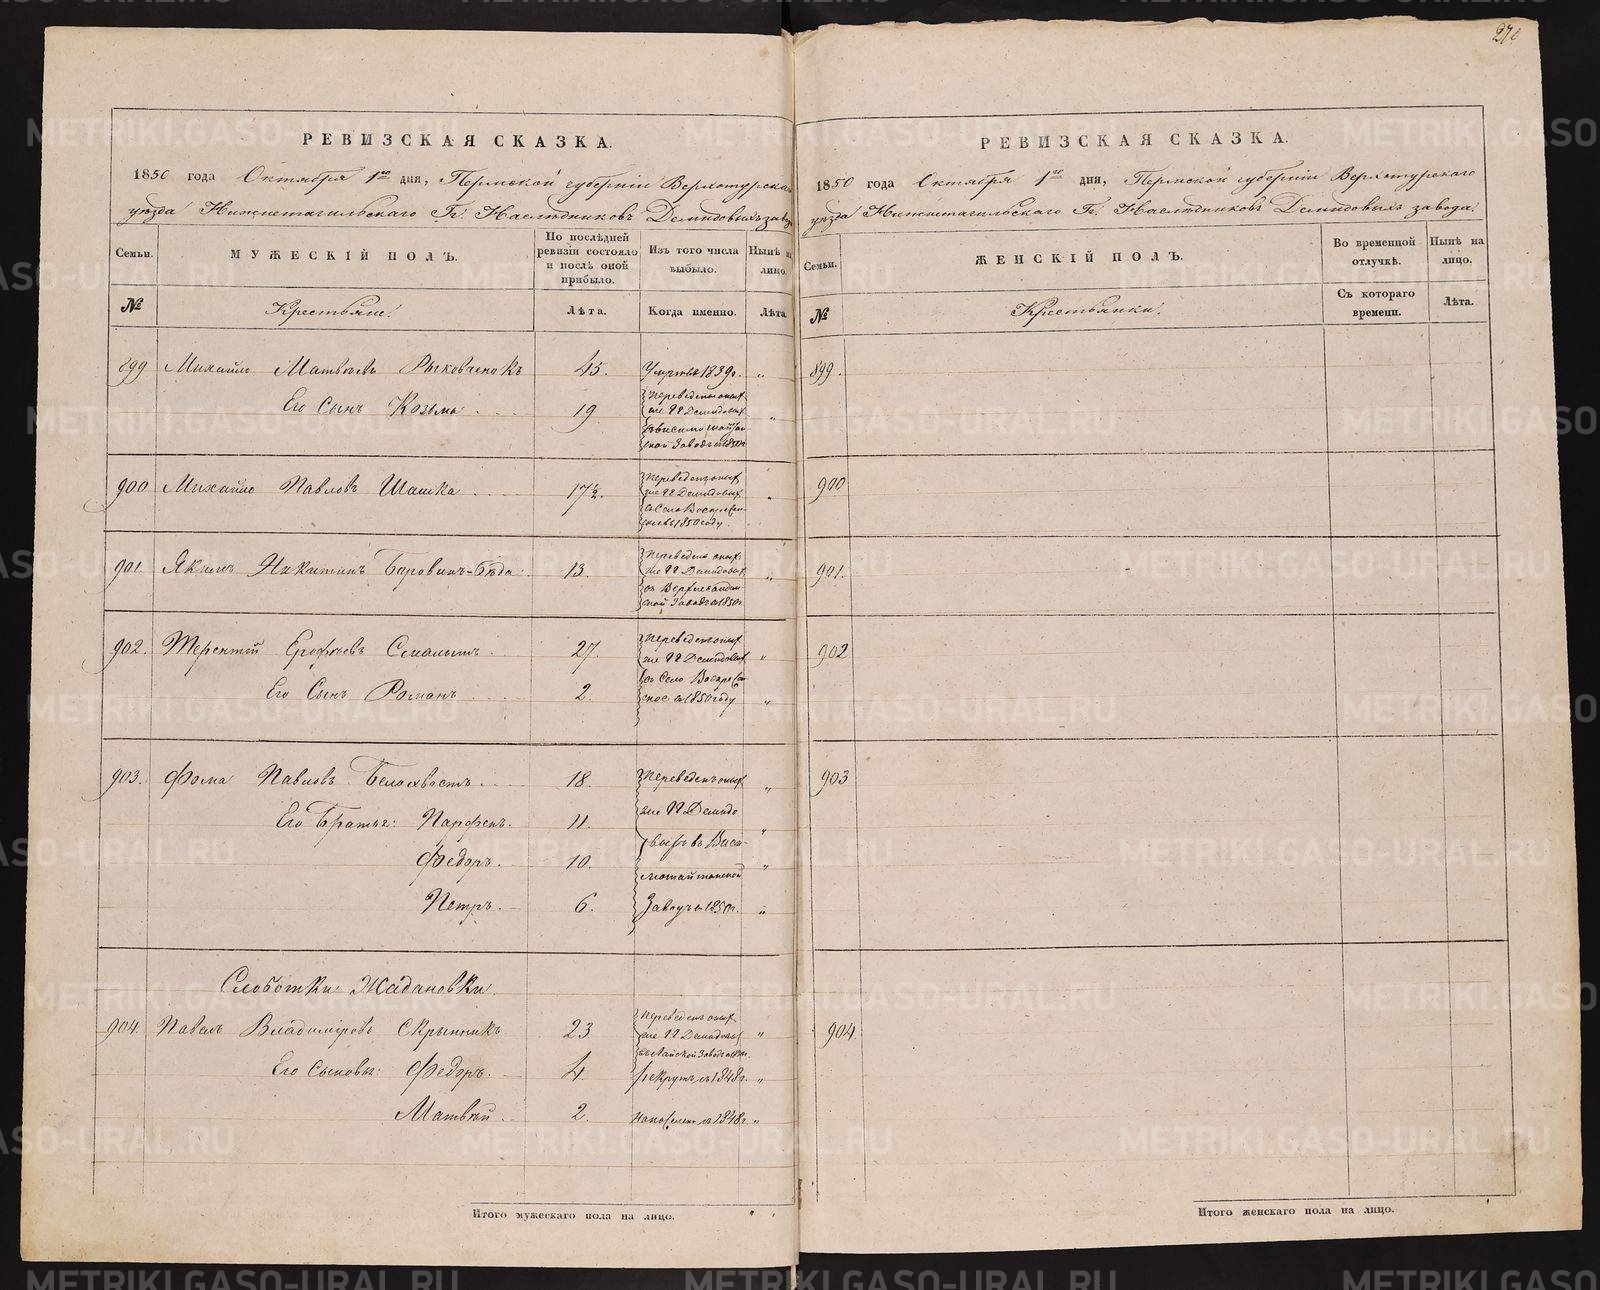 270
РЕВИЗСКАЯ СКАЗКА.
1850 года Октября 1го дня, Пермской губерніи Верхотурска
уѣзда Нижнетагильскаго Гг. Наслѣдниковъ Демидовыхъ заво
Семьи.
МУЖЕСКІЙ ПОЛЪ.
По послѣдней ревизіи состояло и послѣ оной прибыло.
Изъ того числа выбыло.
Нынѣ на лицо.
№
Крестьяне.
Лѣта.
Когда именно.
Лѣта.
899 Михайло Матвѣевъ Рыковченокъ 45. Умре въ 1839г. „
Его Сынъ Козьма 19 Переведенъ оныхъ „
же ГГ Демидовыхъ
въ Висимошайтан-
ской Заводъ въ 1850г
900 Михайло Павловъ Шашка 17½. Переведенъ оныхъ „
же ГГ Демидовыхъ
въ Село Воскресен-
ское въ 1850 году.
901. Якимъ Никитинъ Боровикъ-Бѣда 13. Переведенъ оныхъ „
же ГГ Демидовыхъ
въ
ской Заводъ въ 1850г
902. Терентій Ерофѣевъ 27. Переведенъ оныхъ „
же ГГ Демидовыхъ
Его Сынъ Романъ 2. въ Село Воскресен „
ское въ 1850 году
903. Фома Павловъ Белохвостъ 18. Переведенъ оныхъ „
Его Братья: Парфенъ. 11. же ГГ Демидо „
Федоръ. 10. выхъ въ Виси- „
мошайтанской
Петръ. 6. Заводъ въ 1850г. „
Слободки Ждановки
904. Павелъ Владиміровъ Скрынникъ 23 Переведенъ оныхъ „
же ГГ Демидовых
въ Лайской Заводъ въ
Его Сыновья: Федоръ. 4. рекрутъ въ 1848г. „
Матвѣй. 2. въ 1848г „
Итого мужескаго пола на лицо. „
РЕВИЗСКАЯ СКАЗКА.
1850 года Октября 1го дня, Пермской губерніи Верхотурскаго
уѣзда Нижнетагильскаго Гг. Наслѣдниковъ Демидовыхъ завода.
Семьи.
ЖЕНСКІЙ ПОЛЪ.
Во временной отлучкѣ.
Нынѣ на лицо.
№
Крестьянки.
Съ котораго времени.
Лѣта.
899.
900
901.
902
903
904.
Итого женскаго пола на лицо.
METRIKI.GASO-URAL.RU